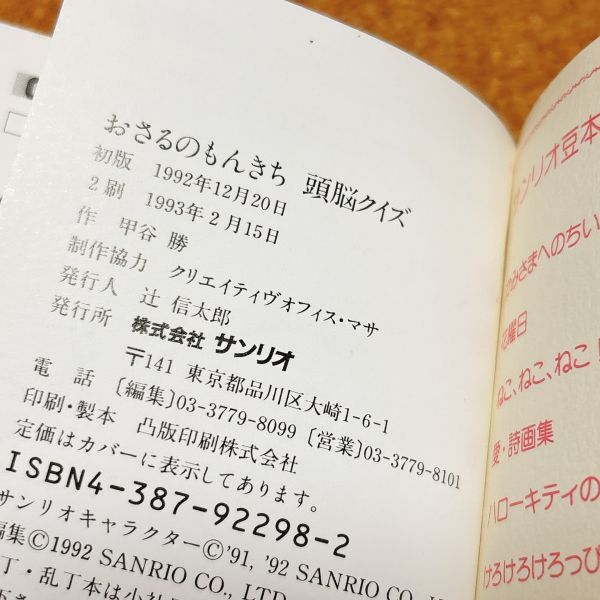 おさるのもんきち 頭脳クイズ
初版 1992年12月20日
2刷 1993年2月15日
作 甲谷 勝
制作協力 クリエイティヴオフィス・マサ
発行人 辻 信太郎
発行所 株式会社 サンリオ
〒141 東京都品川区大崎1-6-1
電話 〔編集〕03-3779-8099 〔営業〕03-3779-8101
印刷・製本 凸版印刷株式会社
定価はカバーに表示してあります。
ISBN4-387-92298-2
サンリオキャラクター©'91, '92 SANRIO CO.,
編集©1992 SANRIO CO., LTD.
丁・乱丁本は小社
サンリオ豆本
みさまへのちい
花曜日
ねこ、ねこ、ねこ!
愛・詩画集
ハローキティの
けろけろけろっぴ